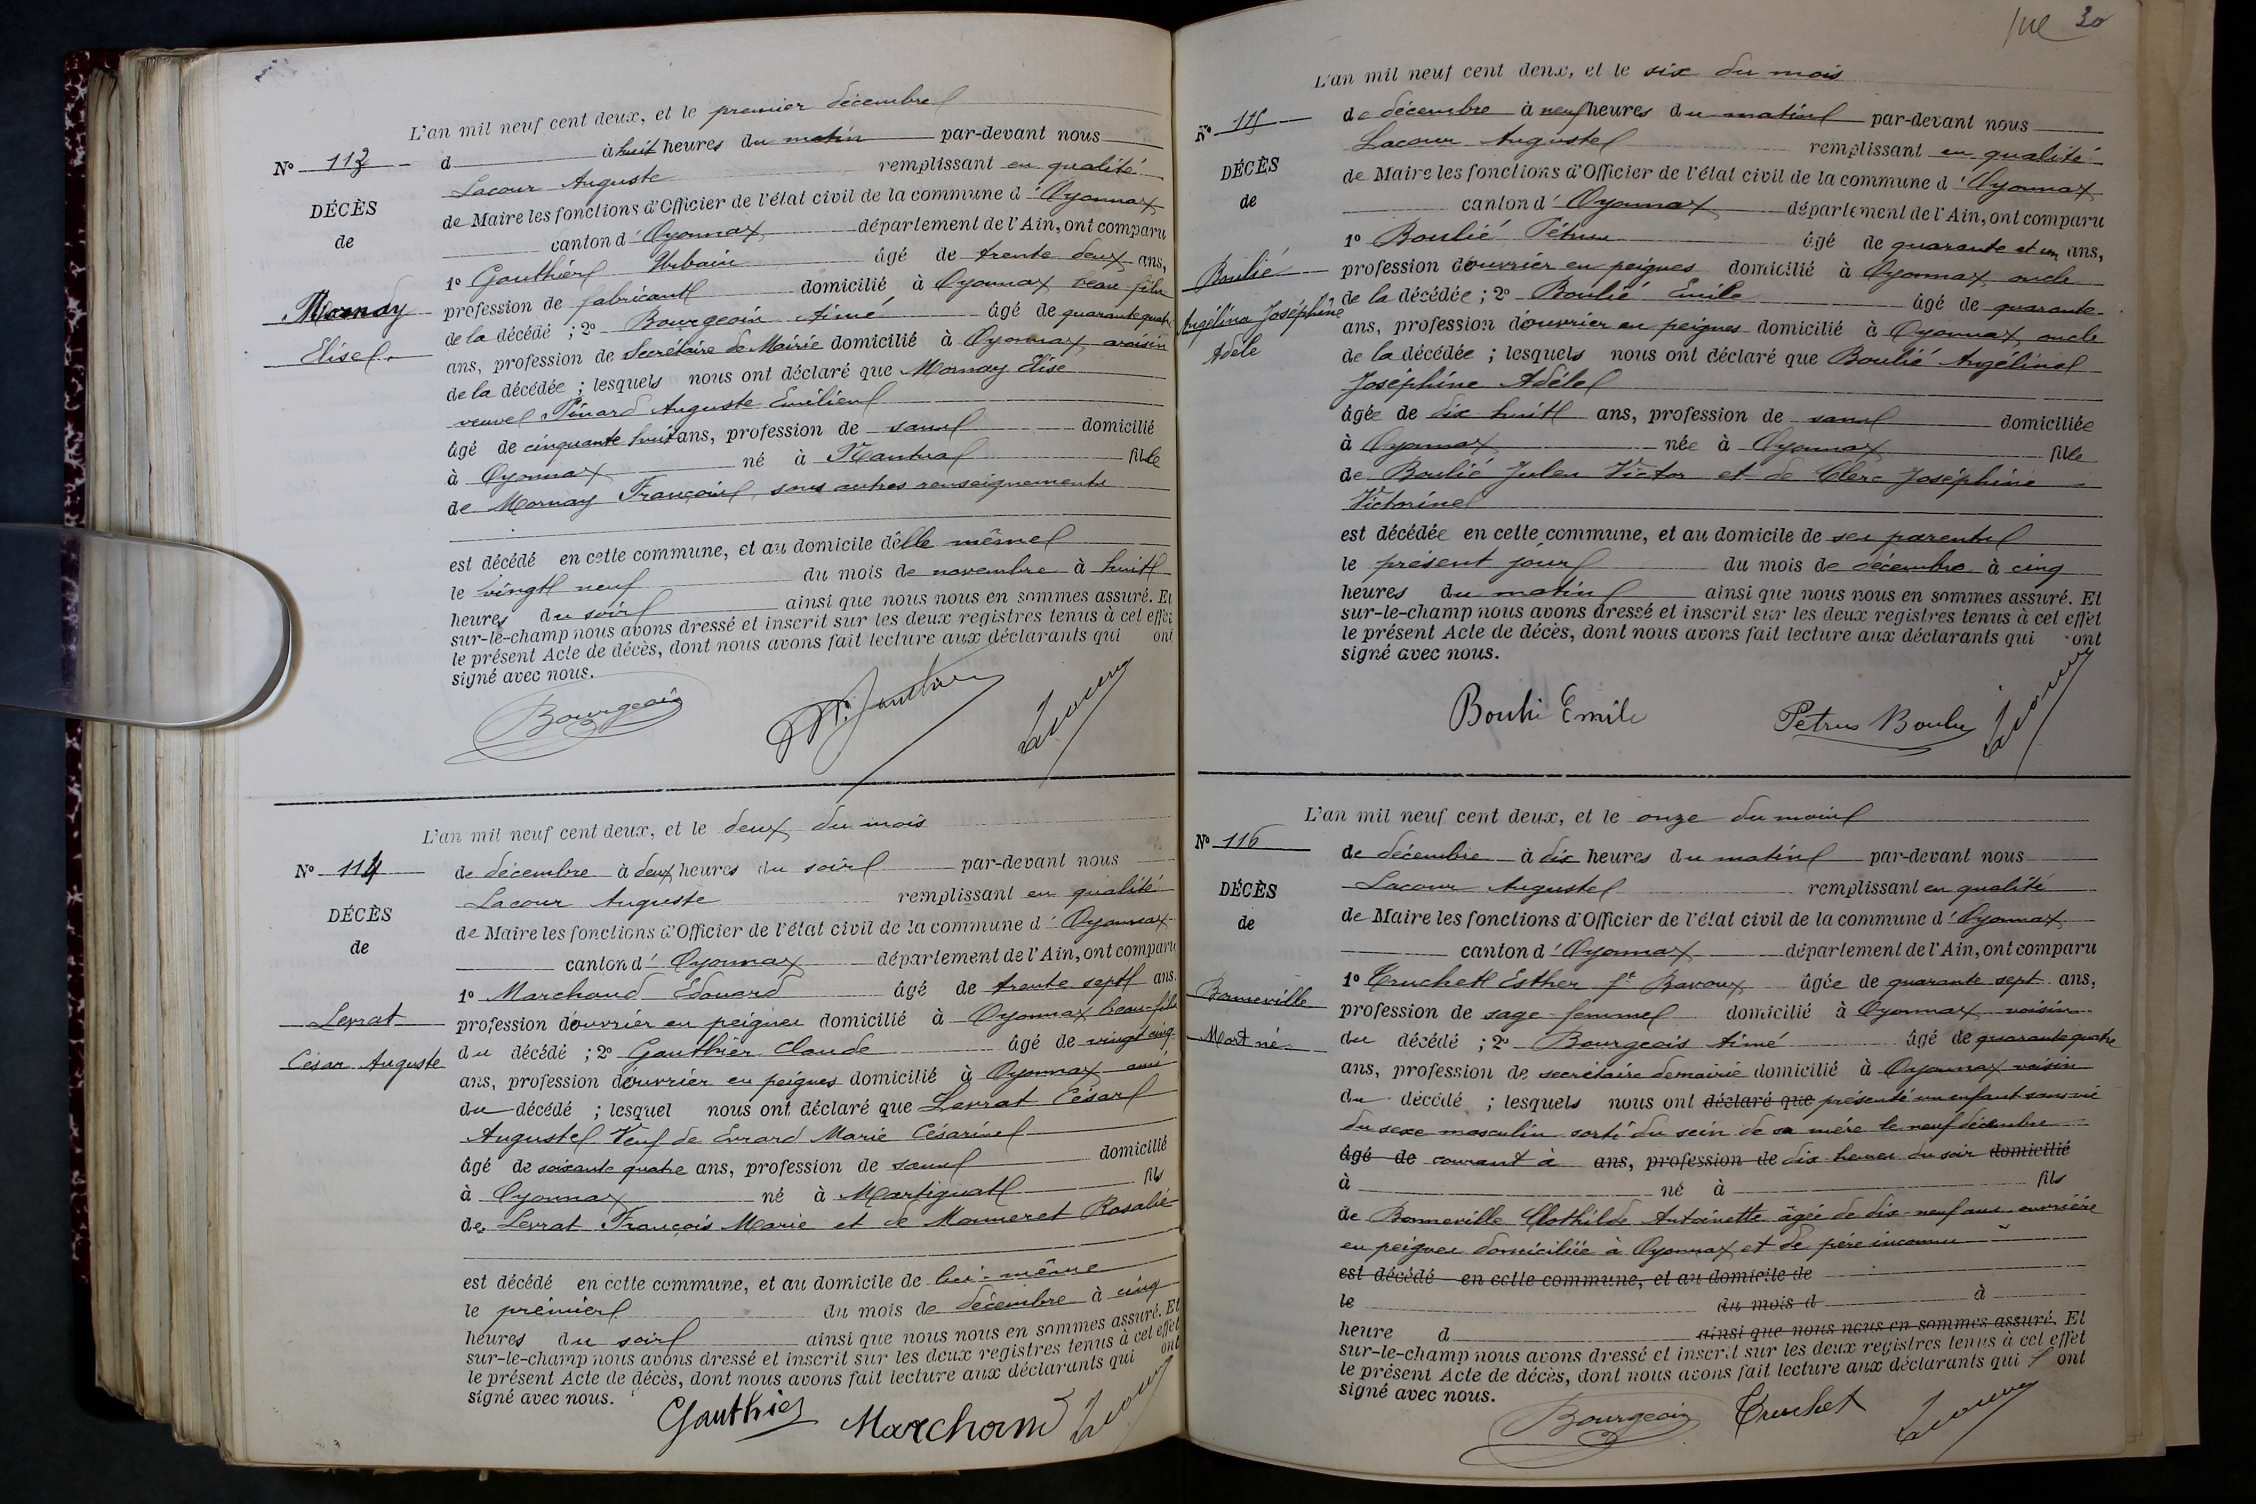 L'an mil neuf cent deux, et le premier décembre
d à huit heures du matin par-devant nous
Nº 113
Lacour Auguste remplissant en qualité
DÉCÈS
de Maire les fonctions d'Officier de l'état civil de la commune d'Oyonnax
de
canton d'Oyonnax département de l'Ain, ont comparu
1º Gauthier Urbain âgé de trente deux ans,
Mornay
profession de fabricant domicilié à Oyonnax beau-fils
Elise
de la décédé ; 2º Bourgeois Aimé âgé de quarante quatre
ans, profession de Secrétaire de Mairie domicilié à Oyonnax voisin
de la décédée ; lesquels nous ont déclaré que Mornay Elise
veuve Pinard Auguste Emilien
âgé de cinquante huit ans, profession de sans domicilié
à Oyonnax né à Nantua fille
de Mornay François, sans autres renseignements
est décédé en cette commune, et au domicile d'elle même
le vingt neuf du mois de novembre à huit
heures du soir ainsi que nous nous en sommes assuré. Et
sur-le-champ nous avons dressé et inscrit sur les deux registres tenus à cet effet
le présent Acte de décès, dont nous avons fait lecture aux déclarants qui ont
signé avec nous.
Bourgeois U. Gauthier Lacour
L'an mil neuf cent deux, et le deux du mois
Nº 114
de décembre à deux heures du soir par-devant nous
Lacour Auguste remplissant en qualité
DÉCÈS
de Maire les fonctions d'Officier de l'état civil de la commune d'Oyonnax
de
canton d'Oyonnax département de l'Ain, ont comparu
1º Marchand Edouard âgé de trente sept ans,
Levrat
profession d'ouvrier en peignes domicilié à Oyonnax beau-fils
César Auguste
du décédé ; 2º Gauthier Claude âgé de vingt cinq
ans, profession d'ouvrier en peignes domicilié à Oyonnax ami
du décédé ; lesquel nous ont déclaré que Levrat César
Auguste Veuf de Evrard Marie Césarine
âgé de soixante quatre ans, profession de sans domicilié
à Oyonnax né à Martignat fils
de Levrat François Marie et de Monneret Rosalie
est décédé en cette commune, et au domicile de lui-même
le premier du mois de décembre à cinq
heures du soir ainsi que nous nous en sommes assuré. Et
sur-le-champ nous avons dressé et inscrit sur les deux registres tenus à cet effet
le présent Acte de décès, dont nous avons fait lecture aux déclarants qui ont
signé avec nous.
Gauthier Marchand Lacour
30
L'an mil neuf cent deux, et le six du mois
Nº 115
de décembre à neuf heures du matin par-devant nous
Lacour Auguste remplissant en qualité
DÉCÈS
de Maire les fonctions d'Officier de l'état civil de la commune d'Oyonnax
de
canton d'Oyonnax département de l'Ain, ont comparu
1º Boulié Pétrus âgé de quarante et un ans,
Boulié
profession d'ouvrier en peignes domicilié à Oyonnax oncle
Angélina Joséphine
de la décédée ; 2º Boulié Emile âgé de quarante
Adèle
ans, profession d'ouvrier en peignes domicilié à Oyonnax oncle
de la décédée ; lesquels nous ont déclaré que Boulié Angélina
Joséphine Adèle
âgée de dix huit ans, profession de sans domiciliée
à Oyonnax née à Oyonnax fille
de Boulié Jules Victor et de Clerc Joséphine
Victorine
est décédée en cette commune, et au domicile de ses parents
le présent jour du mois de décembre à cinq
heures du matin ainsi que nous nous en sommes assuré. Et
sur-le-champ nous avons dressé et inscrit sur les deux registres tenus à cet effet
le présent Acte de décès, dont nous avons fait lecture aux déclarants qui ont
signé avec nous.
Boulié Emile Petrus Boulié Lacour
L'an mil neuf cent deux, et le onze du mois
Nº 116
de décembre à dix heures du matin par-devant nous
Lacour Auguste remplissant en qualité
DÉCÈS
de Maire les fonctions d'Officier de l'état civil de la commune d'Oyonnax
de
canton d'Oyonnax département de l'Ain, ont comparu
1º Truchet Esther fe Bavoux âgée de quarante sept ans,
Bonneville
profession de sage-femme domicilié à Oyonnax voisine
Mort né
du décédé ; 2º Bourgeois Aimé âgé de quarante quatre
ans, profession de secrétaire de mairie domicilié à Oyonnax voisin
du décédé ; lesquels nous ont déclaré que présenté un enfant sans vie
du sexe masculin sorti du sein de sa mère le neuf décembre
âgé de courant à ans, profession de dix heures du soir domicilié
à né à fils
de Bonneville Clothilde Antoinette âgée de dix-neuf ans ouvrière
en peignes domiciliée à Oyonnax et de père inconnu
est décédé en cette commune, et au domicile de
le du mois d à
heure d ainsi que nous nous en sommes assuré. Et
sur-le-champ nous avons dressé et inscrit sur les deux registres tenus à cet effet
le présent Acte de décès, dont nous avons fait lecture aux déclarants qui ont
signé avec nous.
Bourgeois Truchet Lacour